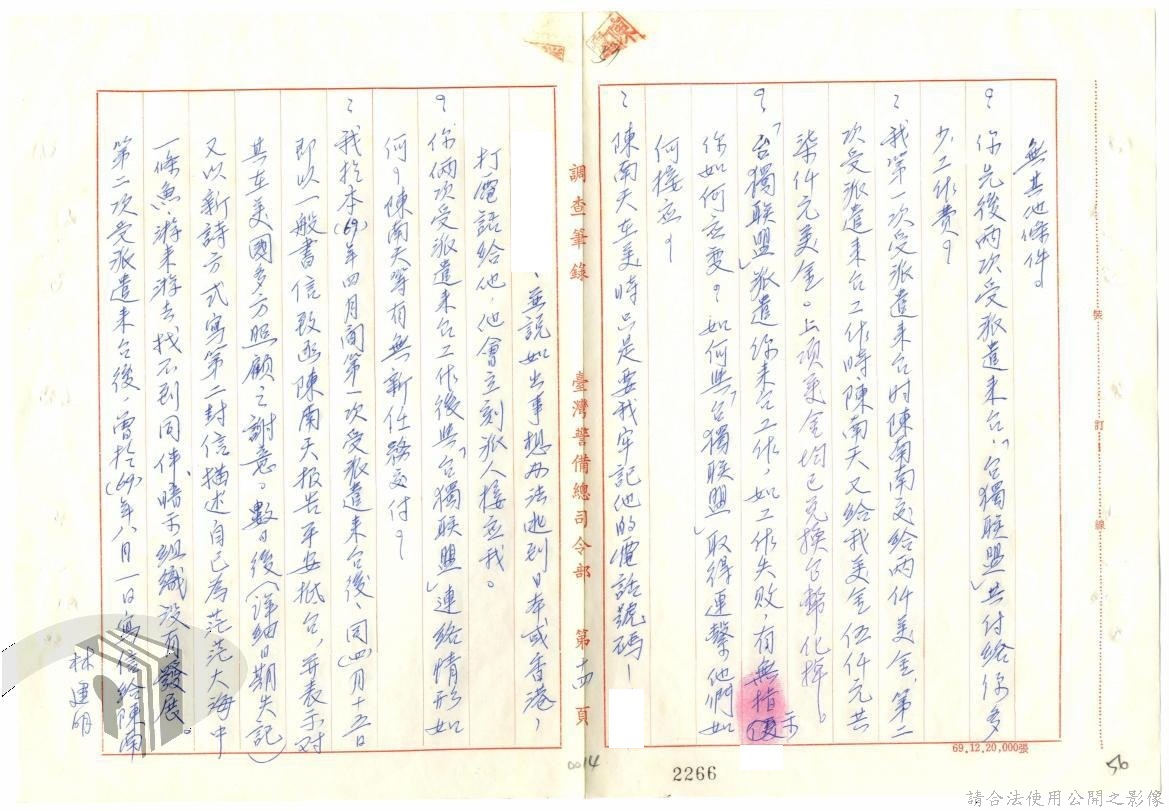 無其他條件。
？你先後兩次受派遣來台，「台獨联盟」共付給你多
少工作費？
：我第一次受派遣來台时陳南南交給两仟美金，第二
次受派遣來台工作時陳南天又給我美金伍仟元共
柒仟元美金。上項美金均已兑換台幣化掉。
？「台獨联盟」派遣你來台工作，如工作失敗，有無指示
你如何应变？如何與「台獨联盟」取得連繫，他們如
何接应？
：陳南天在美時只是要我牢記他的電話號碼－
69,12,20,000張
裝
訂
線
56
2266
0014
調查筆錄 臺灣警備總司令部 第十四頁
、並說如出事想办法逃到日本或香港，
打電話給他，他會立刻派人接应我。
？你兩次受派遣來台工作後與「台獨联盟」連絡情形如
何？陳南天等有無新任務交付？
：我於本(69)年四月間第一次受派遣來台後、同(四)月十五日
即以一般書信致函陳南天报告平安抵台，並表示对
其在美國多方照顧之謝意。數日後(詳細日期失記)
又以新詩方式寫第二封信描述自己為茫茫大海中
一條魚，游來游去找不到同伴，暗示組織没有發展。
第二次受派遣來台後，曾於(69)年八月一日寫信給陳南
林建明
請合法使用公開之影像